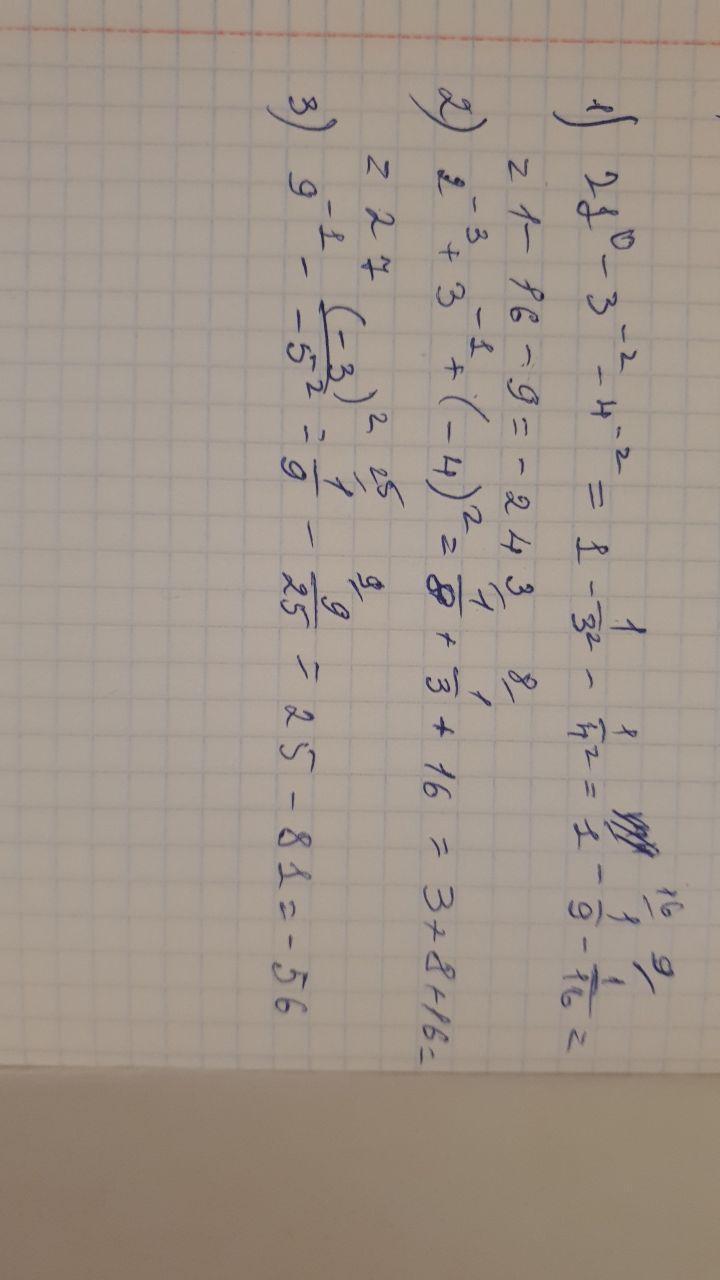 1) 21⁰ - 3⁻² - 4⁻² = 1 - 1/3² - 1/4² = 1 - 1/9 ¹⁶ - 1/16 ⁹ =
= 1 - 16 - 9 = - 24
2) 2⁻³ + 3⁻¹ + (-4)² = 1/8 ³ + 1/3 ⁸ + 16 = 3 + 8 + 16 =
= 27
3) 9⁻¹ - (-3)²/-5² = 1/9 ²⁵ - 9/25 ⁹ = 25 - 81 = - 56